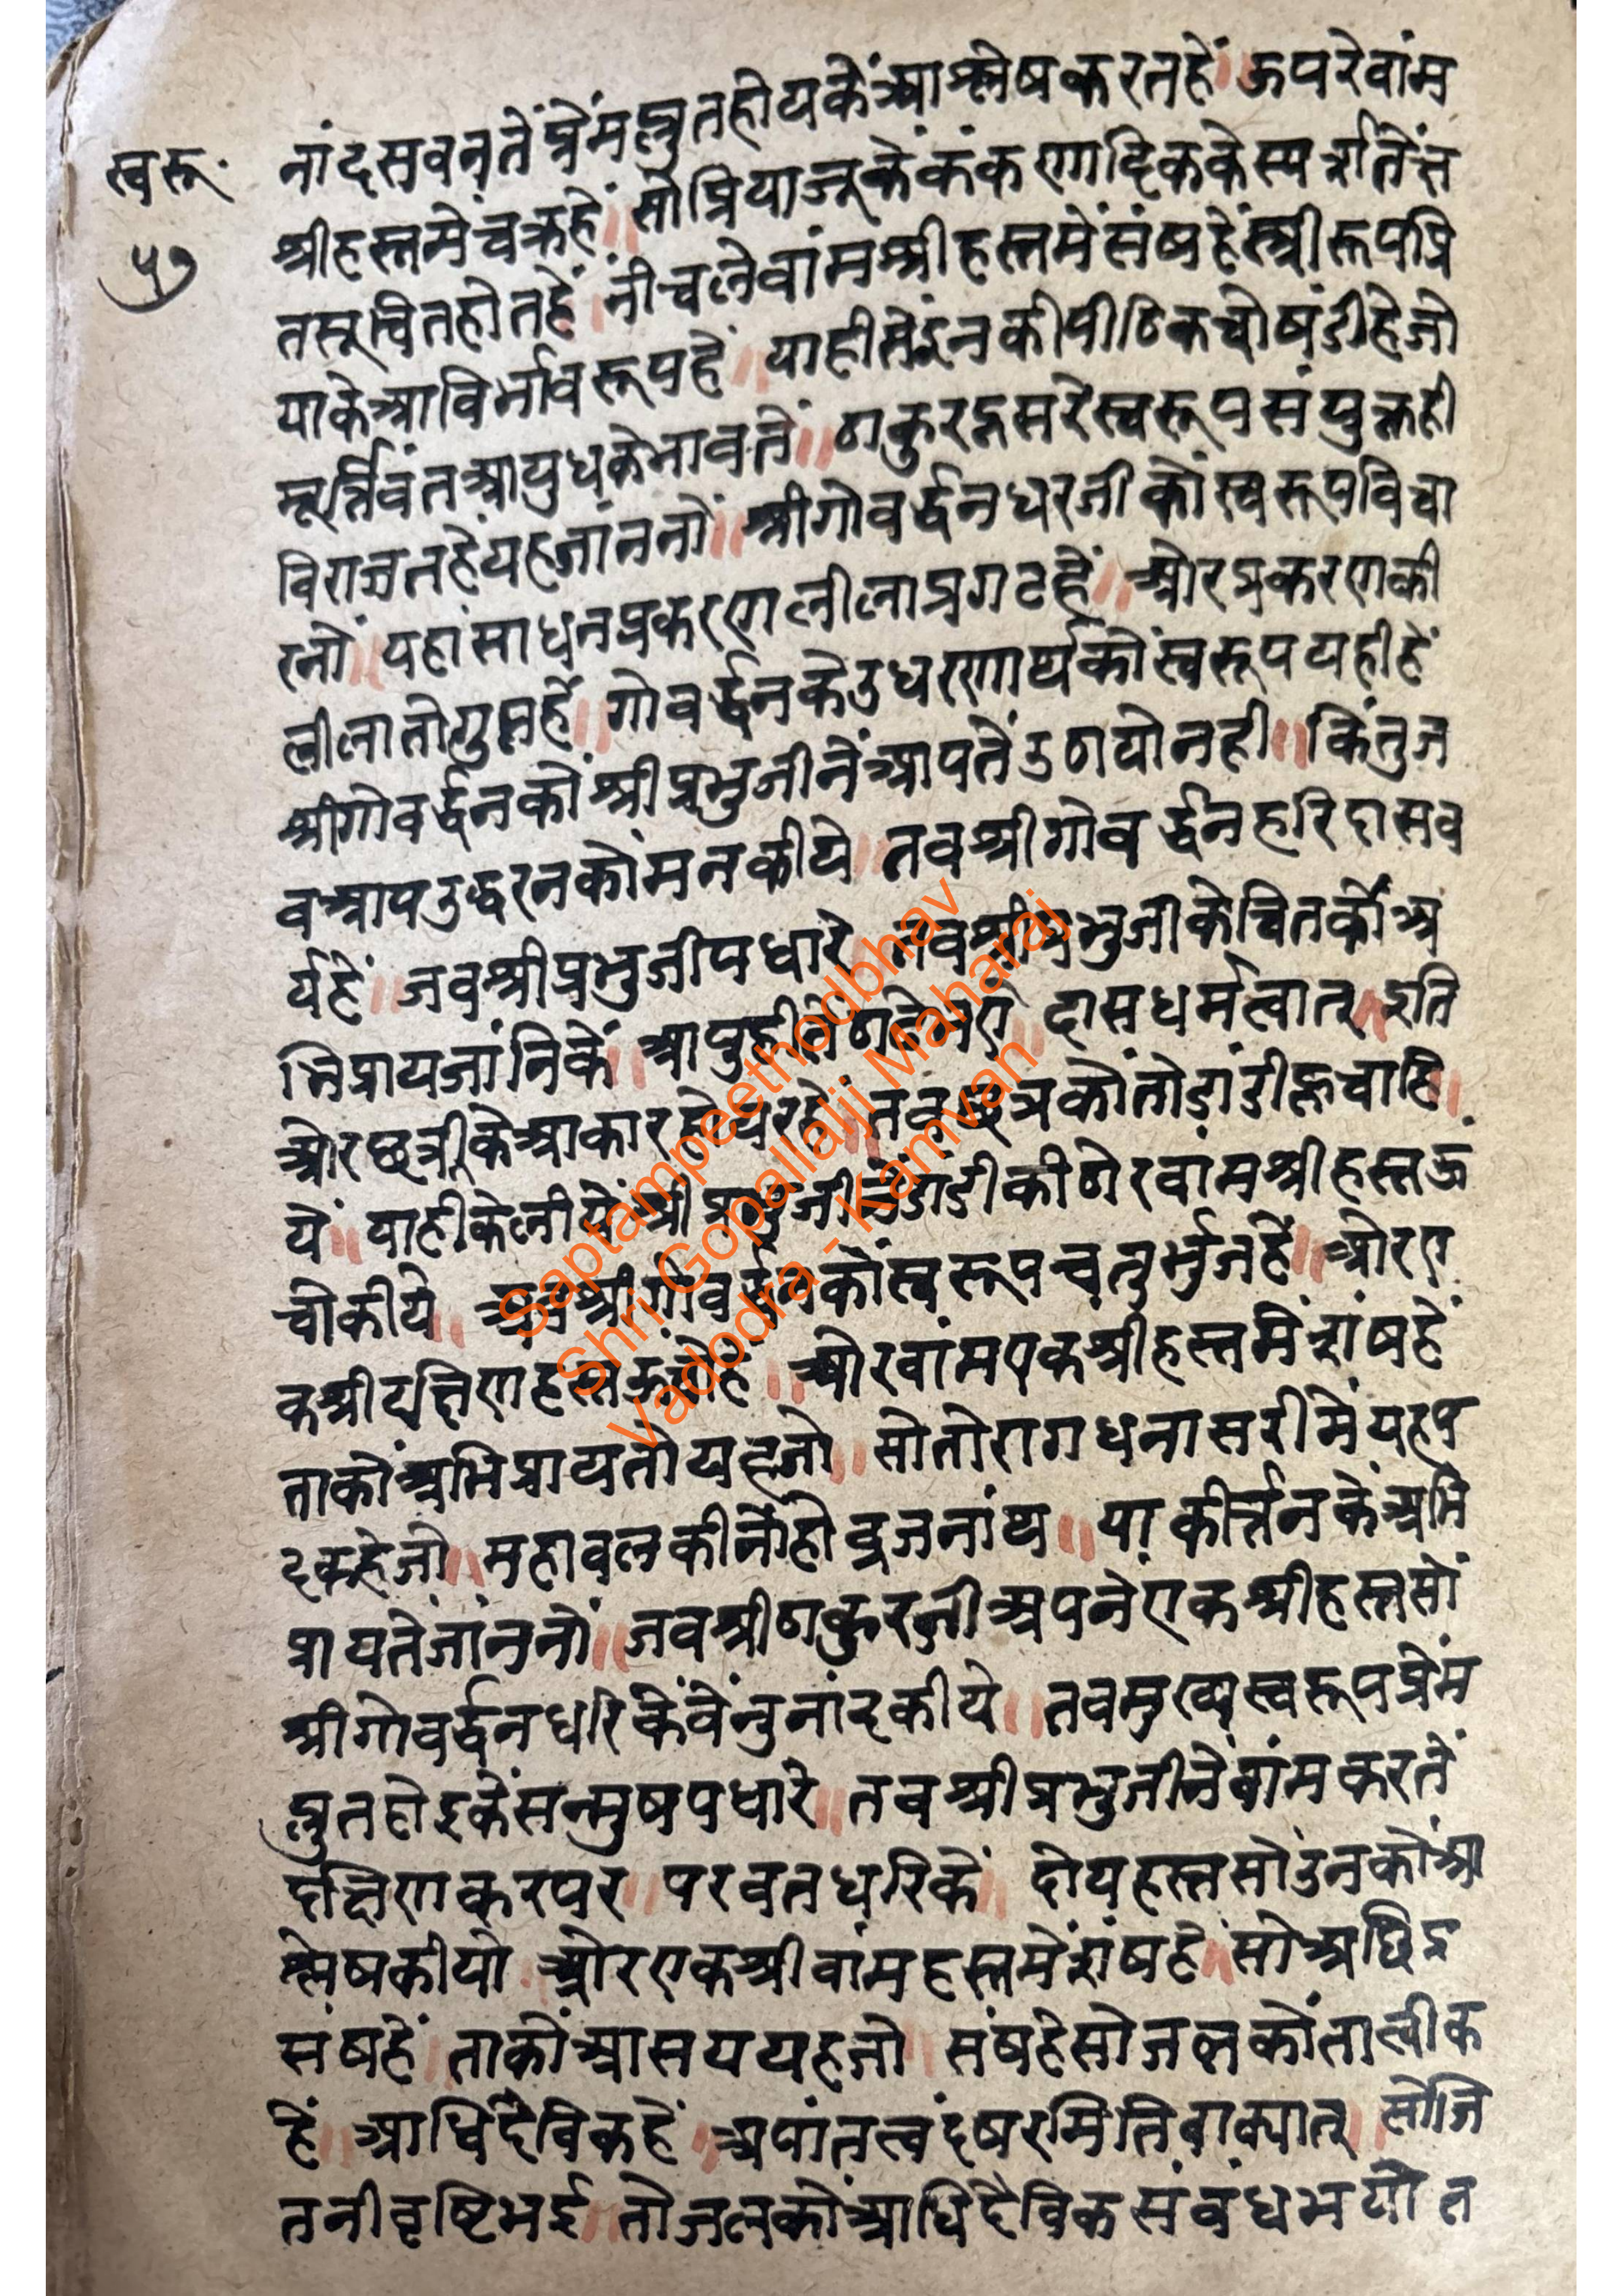 स्वरू·
५७
नांदसवनतें प्रेमप्लुतहोयकें आश्लेषकरतहें॥ ऊपरेवांम
श्रीहस्तमेंचक्रहें॥ सोप्रियाजूकेकंकणादिककेस्पर्शतेंत
तसूचितहोतहें॥ नीचलेवांमश्रीहस्तमेंसंषहेंस्त्रीरूपप्रि
याकेआविर्भावरूपहें॥ याहीसेइनकीपीठिकचोषंडीहेजो
मूर्त्तिवंतआयुधकेभावतें॥ ठाकुरदूसरेस्वरूपसंयुक्तही
विराजतहेंयहजांननों॥ श्रीगोवर्द्धनधरजीकोंस्वरूपविचा
रनों॥ यहांसाधनप्रकरणलीलाप्रगटहें॥ ओरप्रकरणकी
लीलातोगुप्तहें॥ गोवर्द्धनकेउधरणार्थकोंस्वरूपयहीहें
श्रीगोवर्द्धनकोंश्रीप्रभुजीनेंआपतेंउठायोनही॥ किंतुज
वआपउद्धरनकोंमनकीये॥ तवश्रीगोवर्द्धनहरिदासव
र्यहें॥ जवश्रीप्रभुजीपधारे॥ तवश्रीप्रभुजीकेचितकोंअ
भिप्रायजांनिकें॥ आपुहीतें दासधर्मत्वात्॥ इति
ओरछत्रीकेआकारहोयरहे॥ तवछत्रकोंतोडांडीहूचाहि॥
यें॥ याहीकेलीयेंश्रीप्रभुजीनेंडांडीकीठोरवांमश्रीहस्तऊं
चोकीये॥ अवश्रीगोवर्द्धनकोंस्वरूपचतुर्भुजहें॥ ओरए
कश्रीदक्षिणहस्तऊंचोहें॥ ओरवांमएकश्रीहस्तमेंशंषहें
ताकोंअभिप्रायतोयहजो॥ सोतोरागधनासरीमेंयहप
दकहेजो॥ महावलकीनोंहोव्रजनांथ॥ याकीर्त्तनकेंअभि
प्रायतेंजांननों॥ जवश्रीठाकुरजीअपनेंएकश्रीहस्तसों
श्रीगोवर्द्धनधरिकेंवेंनुनांदकीये॥ तवमुख्यस्वरूपप्रेंम
प्लुतहोइकेंसन्मुषपधारे॥ तवश्रीप्रभुजीनेंवांमकरतें
दक्षिणकरपर॥ परवतधरिकें॥ दोयहस्तसोंउनकोंआ
श्लेषकीयो॥ ओरएकश्रीवांमहस्तमेंशंषहें॥ सोअछिद्र
संषहें॥ ताकोंआसययहजो॥ संषहेसोजलकोंतात्वीक
हें॥ आधिदैविकहें॥ अपांतत्वंदषरमितिवाक्यात्॥ सोजि
तनीवृष्टिभई॥ तोजलकोंआधिदैविकसंवंधभयोत